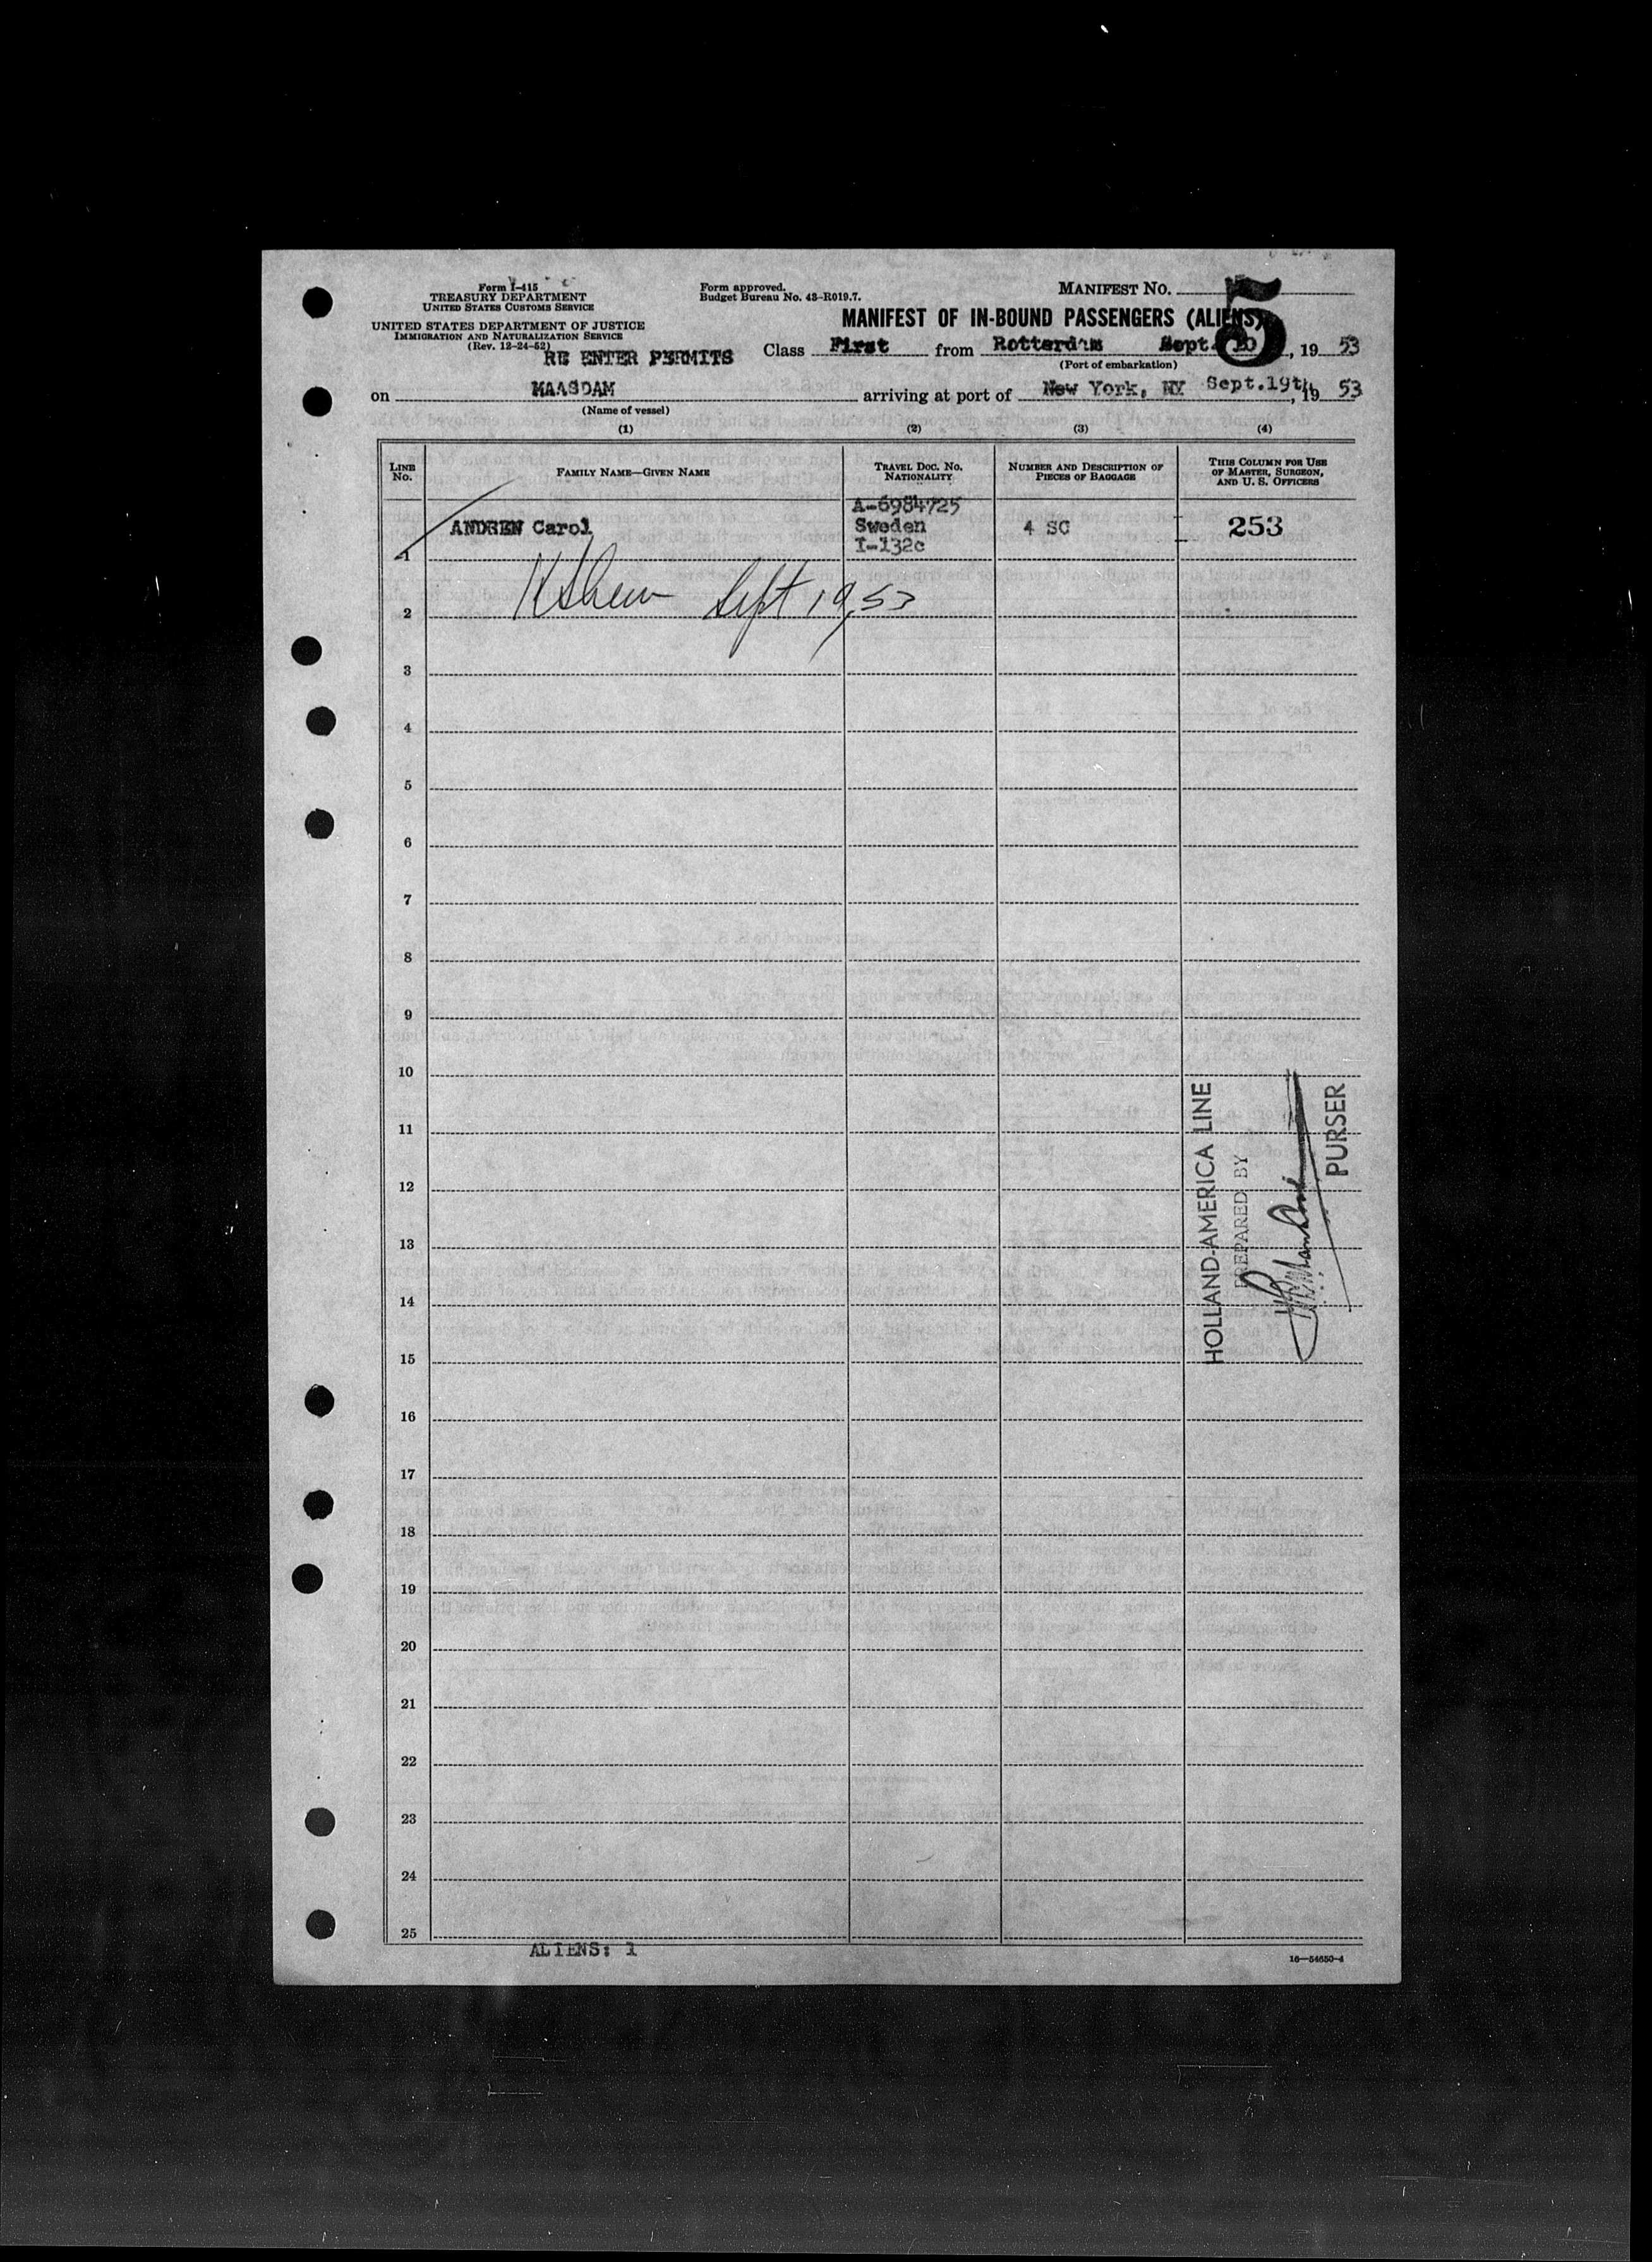 Form I-415
TREASURY DEPARTMENT
UNITED STATES CUSTOMS SERVICE
UNITED STATES DEPARTMENT OF JUSTICE
IMMIGRATION AND NATURALIZATION SERVICE
(Rev. 12-24-52)
Form approved.
Budget Bureau No. 43-R019.7.
MANIFEST NO.
5
MANIFEST OF IN-BOUND PASSENGERS (ALIENS)
RE ENTER PERMITS
Class First from Rotterdam Sept. 10, 1953
(Port of embarkation)
on MAASDAM arriving at port of New York, NY Sept.19th, 1953
(Name of vessel)
(1) (2) (3) (4)
LINE NO.
FAMILY NAME—GIVEN NAME
TRAVEL DOC. NO. NATIONALITY
NUMBER AND DESCRIPTION OF PIECES OF BAGGAGE
THIS COLUMN FOR USE OF MASTER, SURGEON, AND U. S. OFFICERS
A-6984725
1 ANDREN Carol Sweden 4 SC 253
I-132c
2 Sept 19, 53
3
4
5
6
7
8
9
10
11
12
13
14
15
16
17
18
19
20
21
22
23
24
25
HOLLAND-AMERICA LINE
PREPARED BY
PURSER
ALIENS: 1
16—54650-4